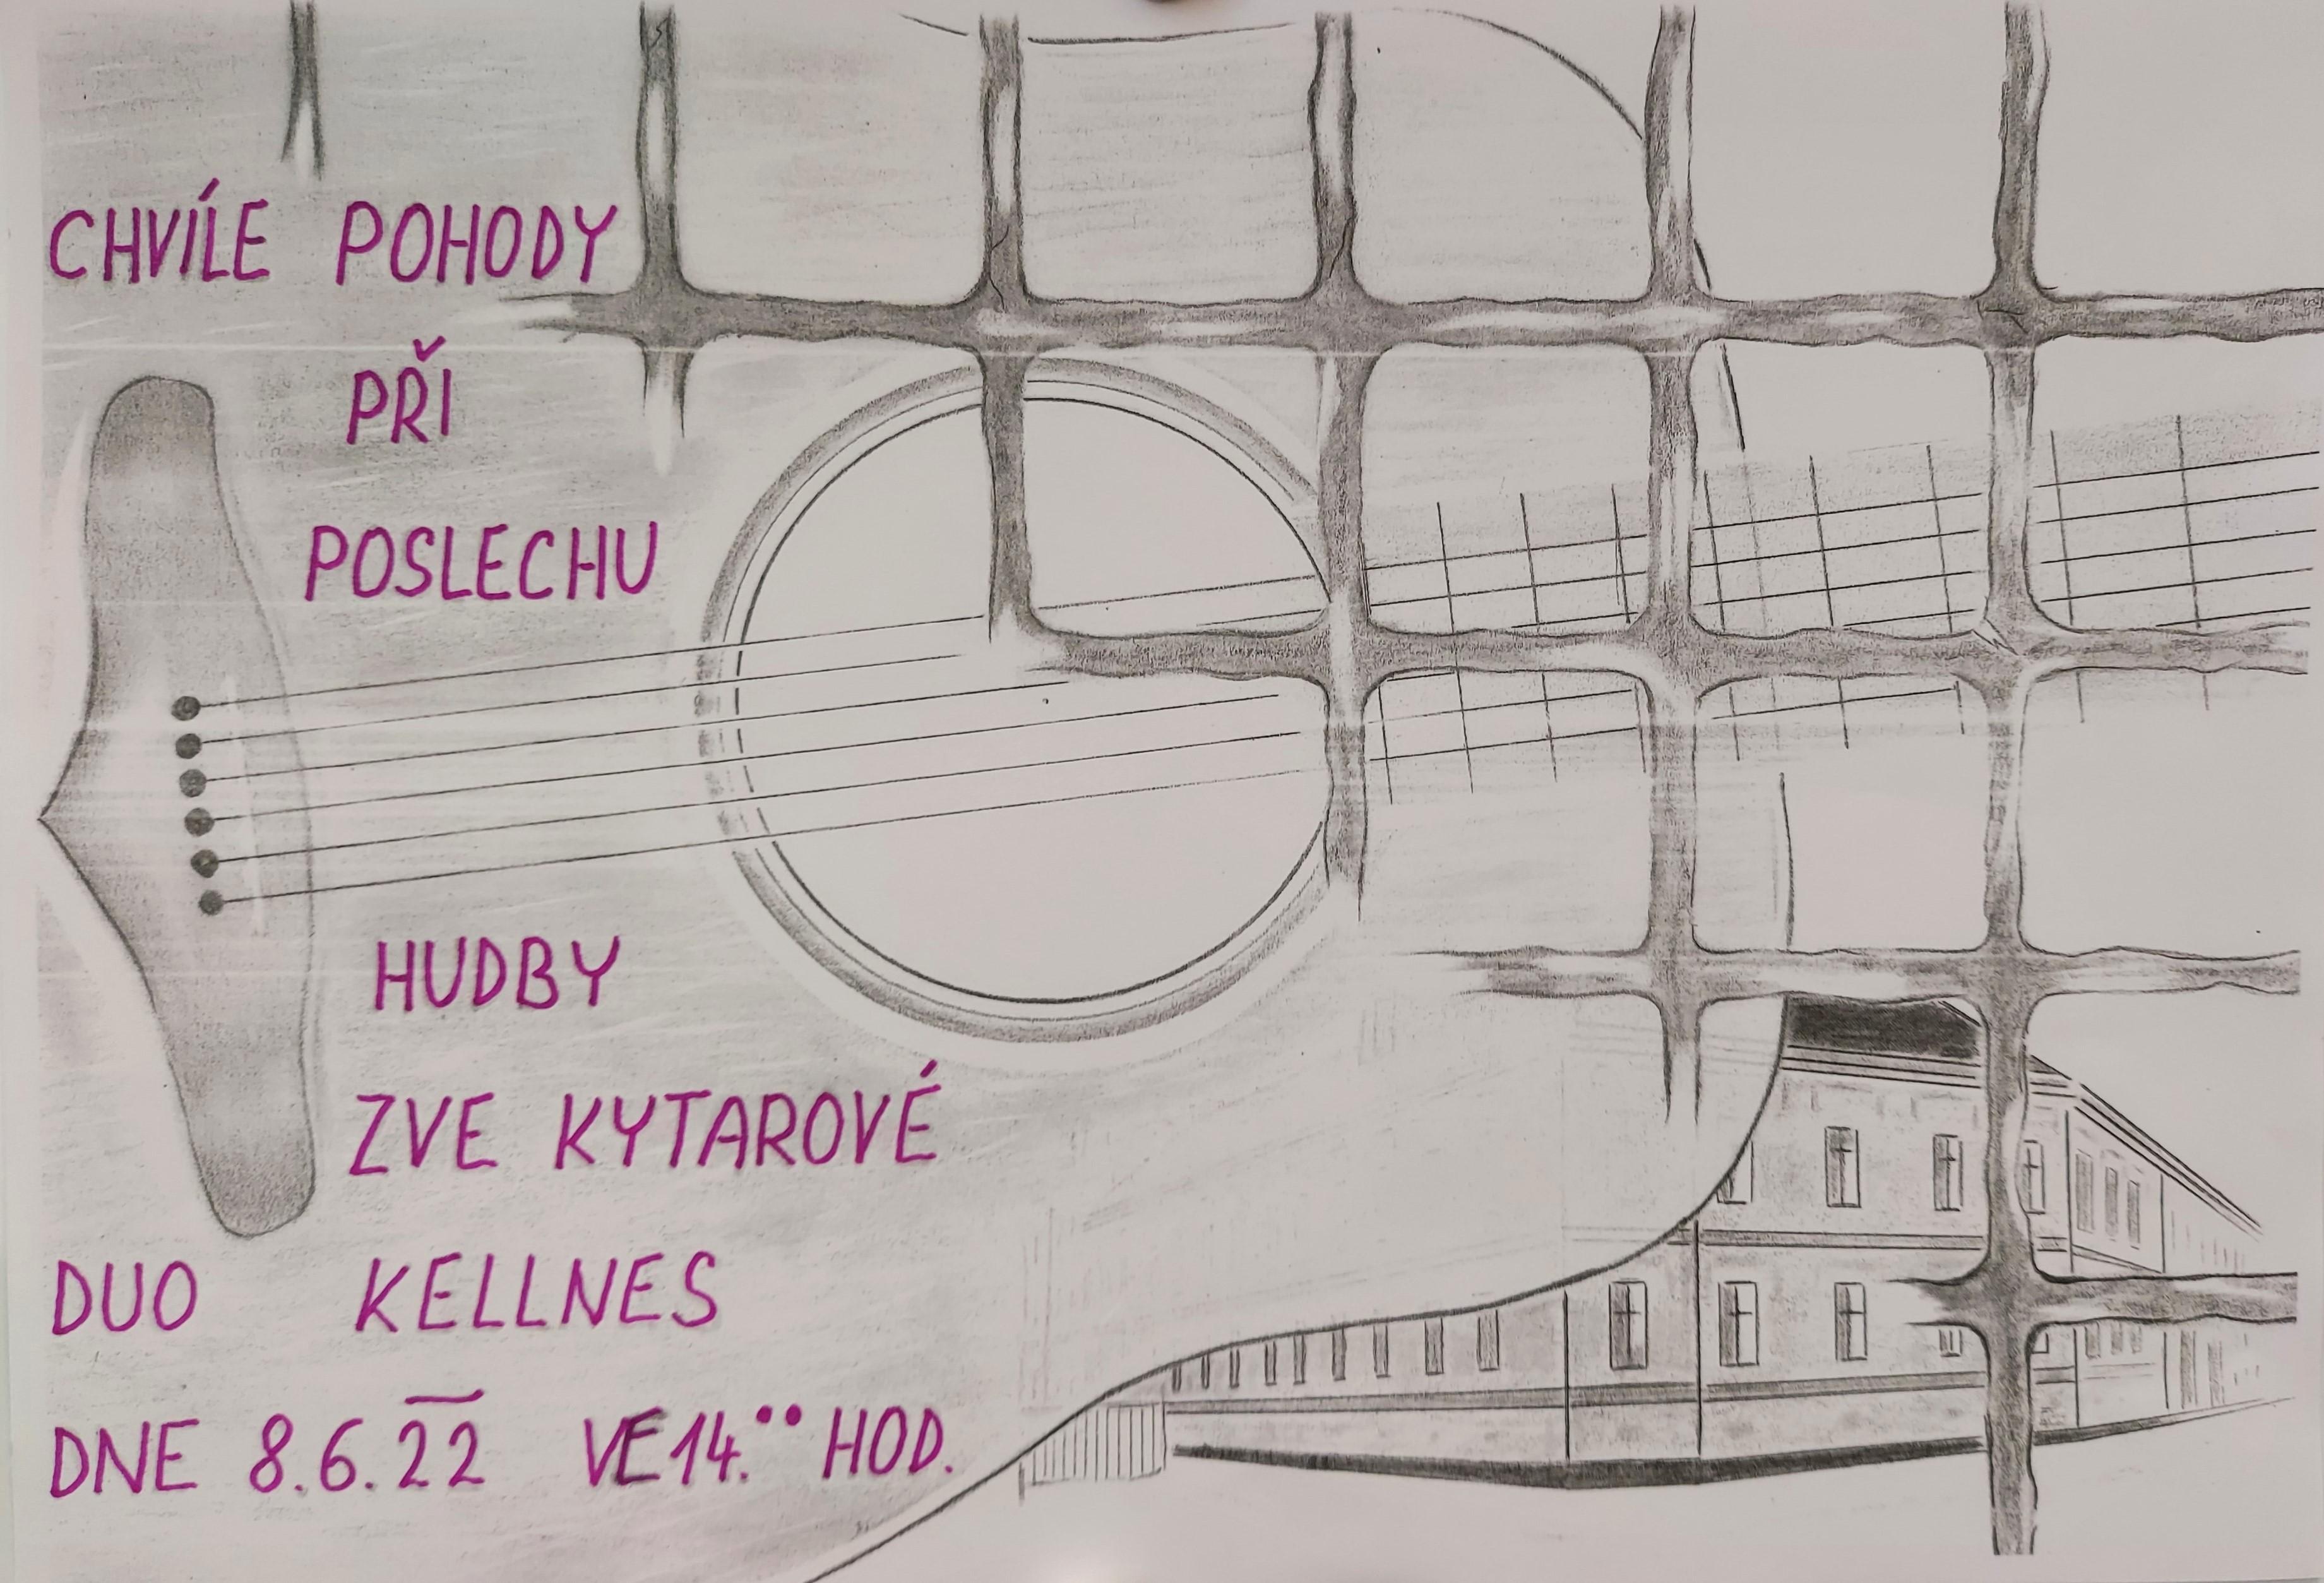 CHVÍLE POHODY
PŘI
POSLECHU
HUDBY
ZVE KYTAROVÉ
DUO KELLNES
DNE 8.6.22 VE 14.°° HOD.